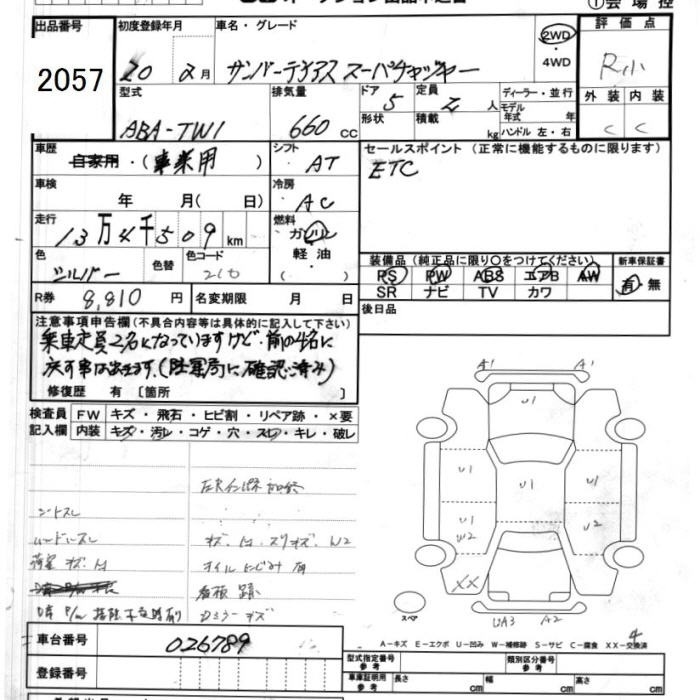 出品番号 初度登録年月 車名・グレード 2WD ・ 4WD 評価点
2057
20 2月 サンバーディアス スーパーチャージャー R小
型式 排気量 ドア 5 定員 2 人 ディーラー・並行 外装 内装
ABA-TW1 660 CC 形状 積載 kg モデル年式 年 ハンドル 左・右 C C
車歴 自家用・(事業用) シフト AT セールスポイント (正常に機能するものに限ります)
ETC
車検 年 月(日) 冷房 AC
走行 13万4千509km 燃料 ガソリン
軽油
色 シルバー 色替 色コード 装備品 (純正品に限り○をつけてください) 新車保証書
PS PW ABS エアB AW 有・無
SR ナビ TV カワ
R券 8,810円 名変期限 月 日 後日品
注意事項申告欄 (不具合内容等は具体的に記入して下さい)
乗車定員2名になっていますけど、前の4名に
戻す事は出来ます。(陸運局に確認済み)
修復歴 有 〔箇所 〕
検査員 FW キズ・飛石・ヒビ割・リペア跡・×要
記入欄 内装 キズ・汚レ・コゲ・穴・スレ・キレ・破レ
A1 A1
U1
U1 U1 U1
U1 W2 U2
XX
UA3 A2
スペア
シートスレ
ハンドルスレ キズ、W2
荷室 キズ オイルにじみ
看板跡
Dミラーキズ
4
A-キズ E-エクボ U-凹み W-補修跡 S-サビ C-腐食 XX-交換済
車台番号 026789
型式指定番号 参考 類別区分番号 参考
登録番号 車庫証明用 参考 長さ cm 幅 cm 高さ cm